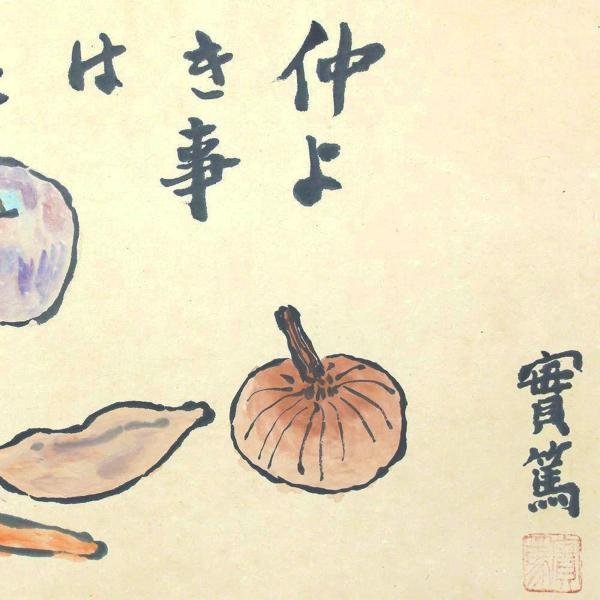 仲よ
き事
は
實篤